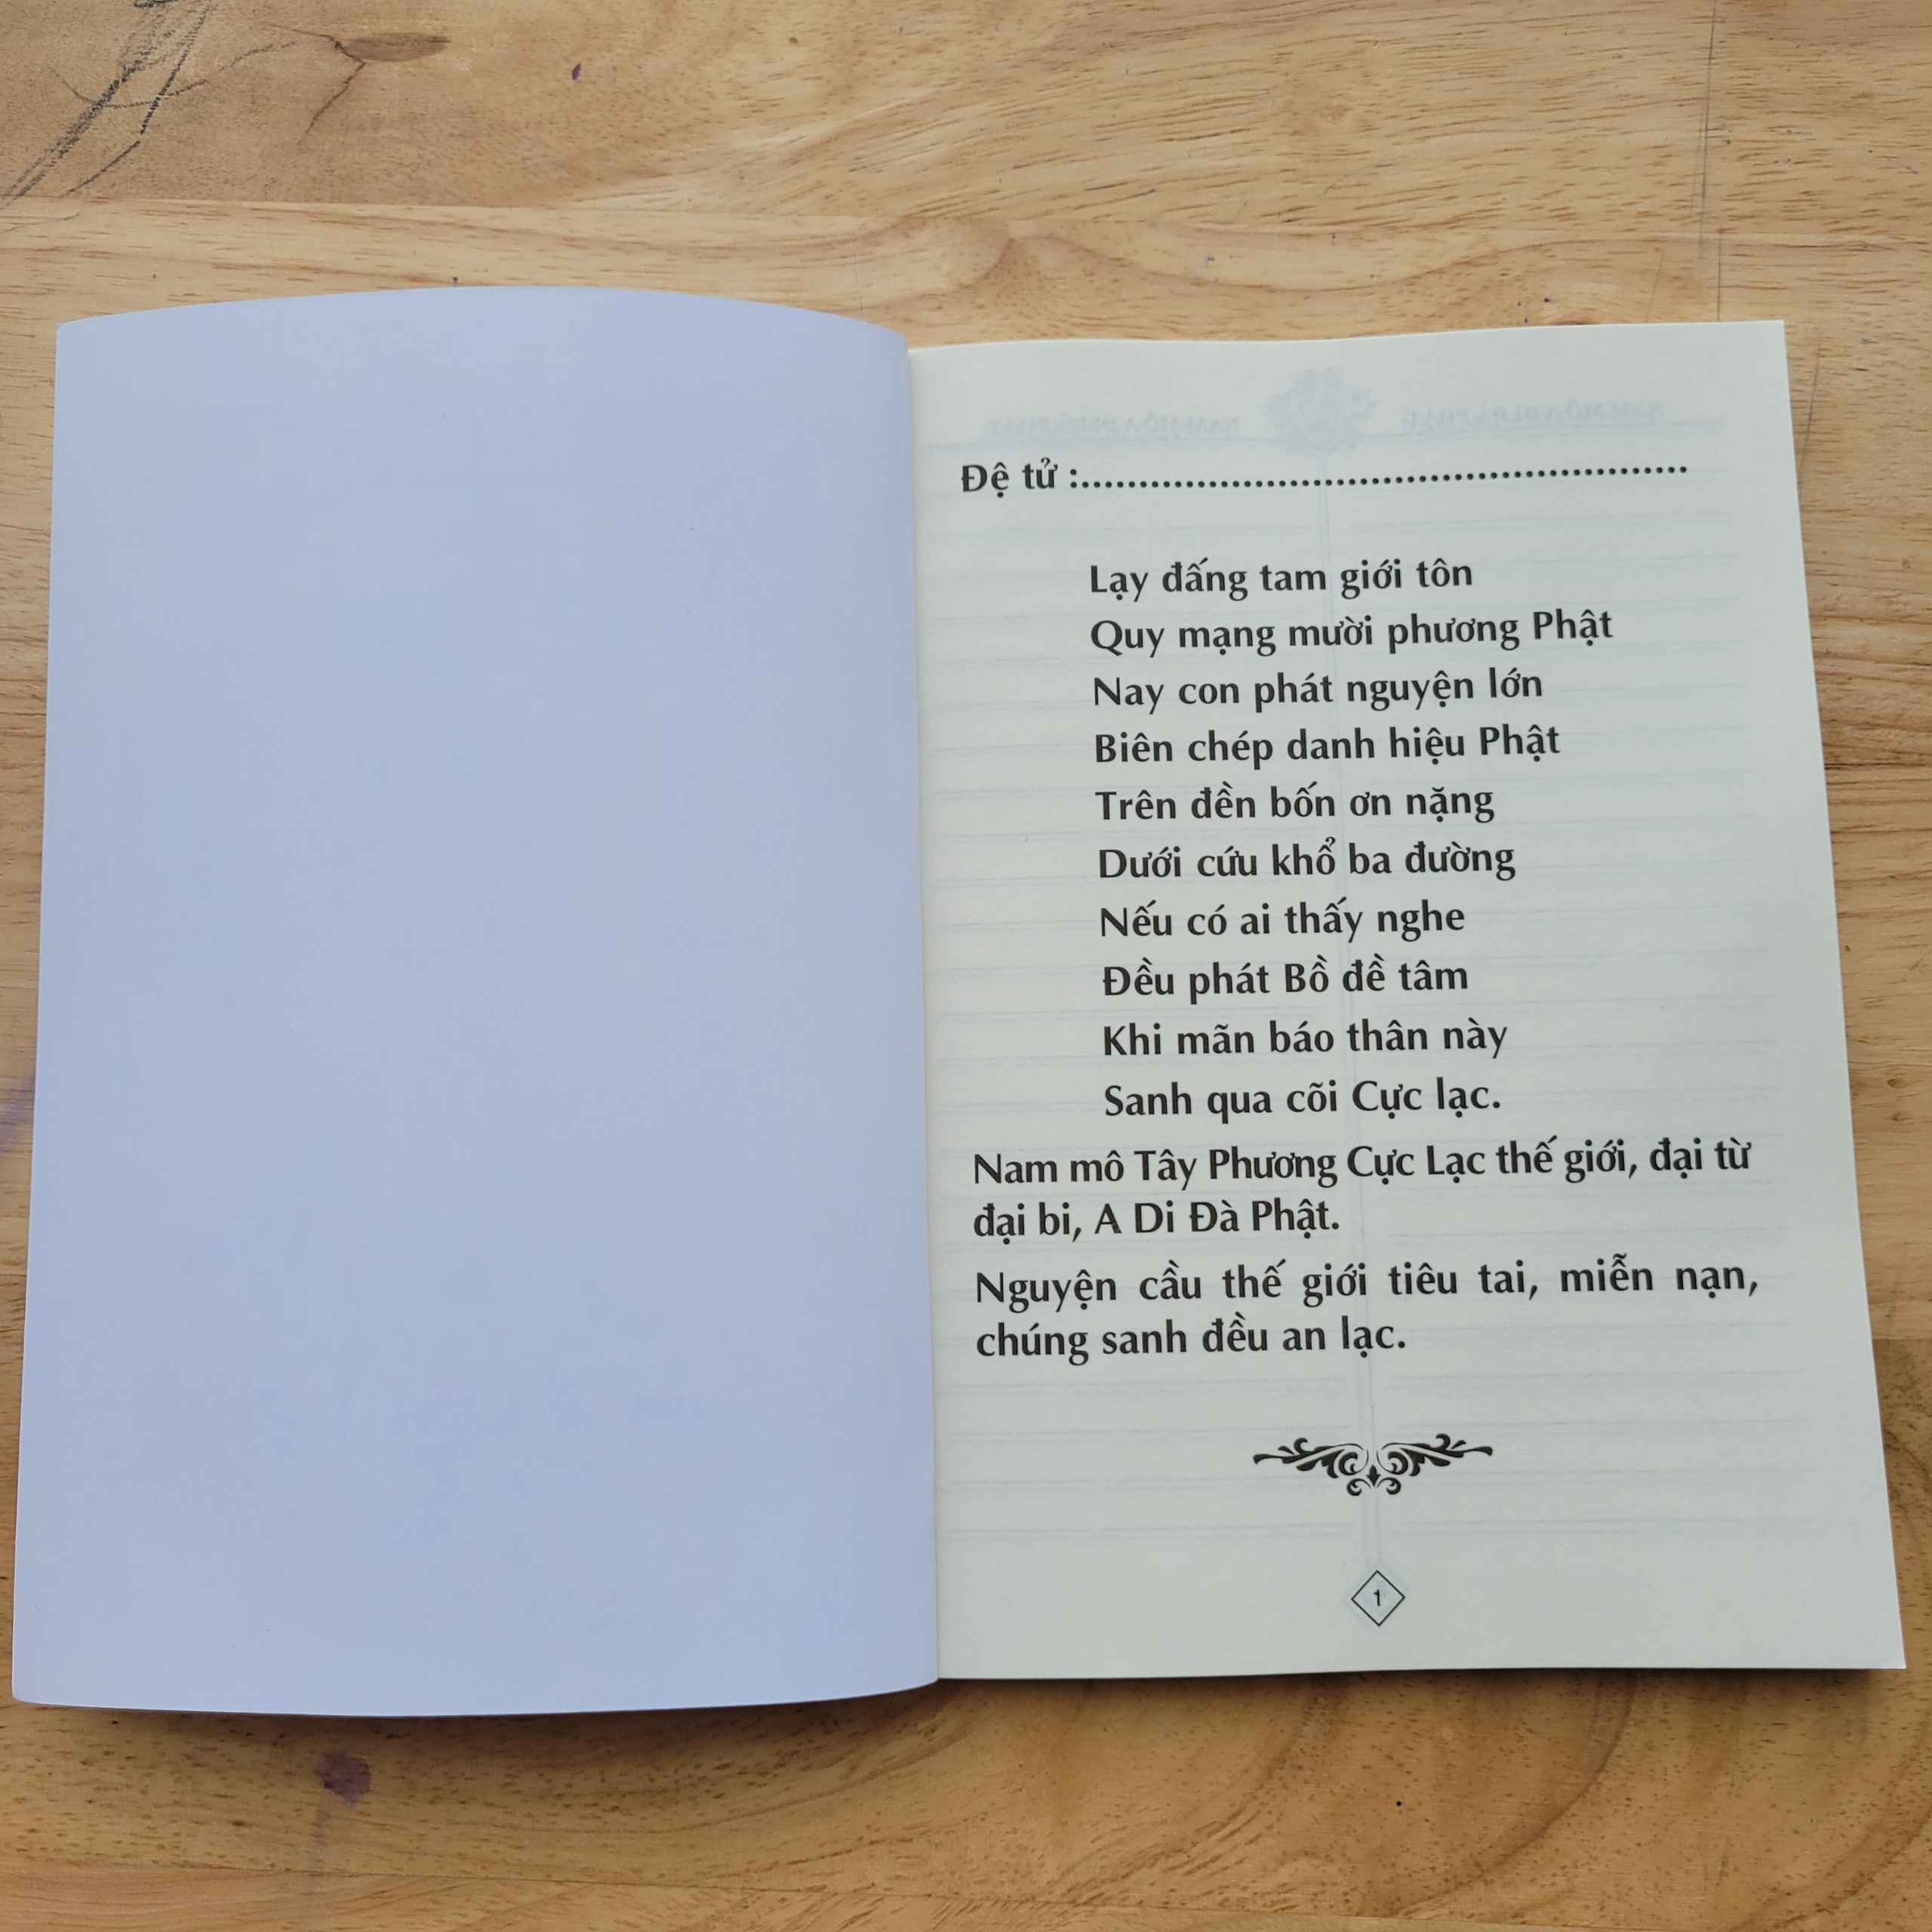 Đệ tử :....................................................
Lạy đấng tam giới tôn
Quy mạng mười phương Phật
Nay con phát nguyện lớn
Biên chép danh hiệu Phật
Trên đền bốn ơn nặng
Dưới cứu khổ ba đường
Nếu có ai thấy nghe
Đều phát Bồ đề tâm
Khi mãn báo thân này
Sanh qua cõi Cực lạc.
Nam mô Tây Phương Cực Lạc thế giới, đại từ
đại bi, A Di Đà Phật.
Nguyện cầu thế giới tiêu tai, miễn nạn,
chúng sanh đều an lạc.
1